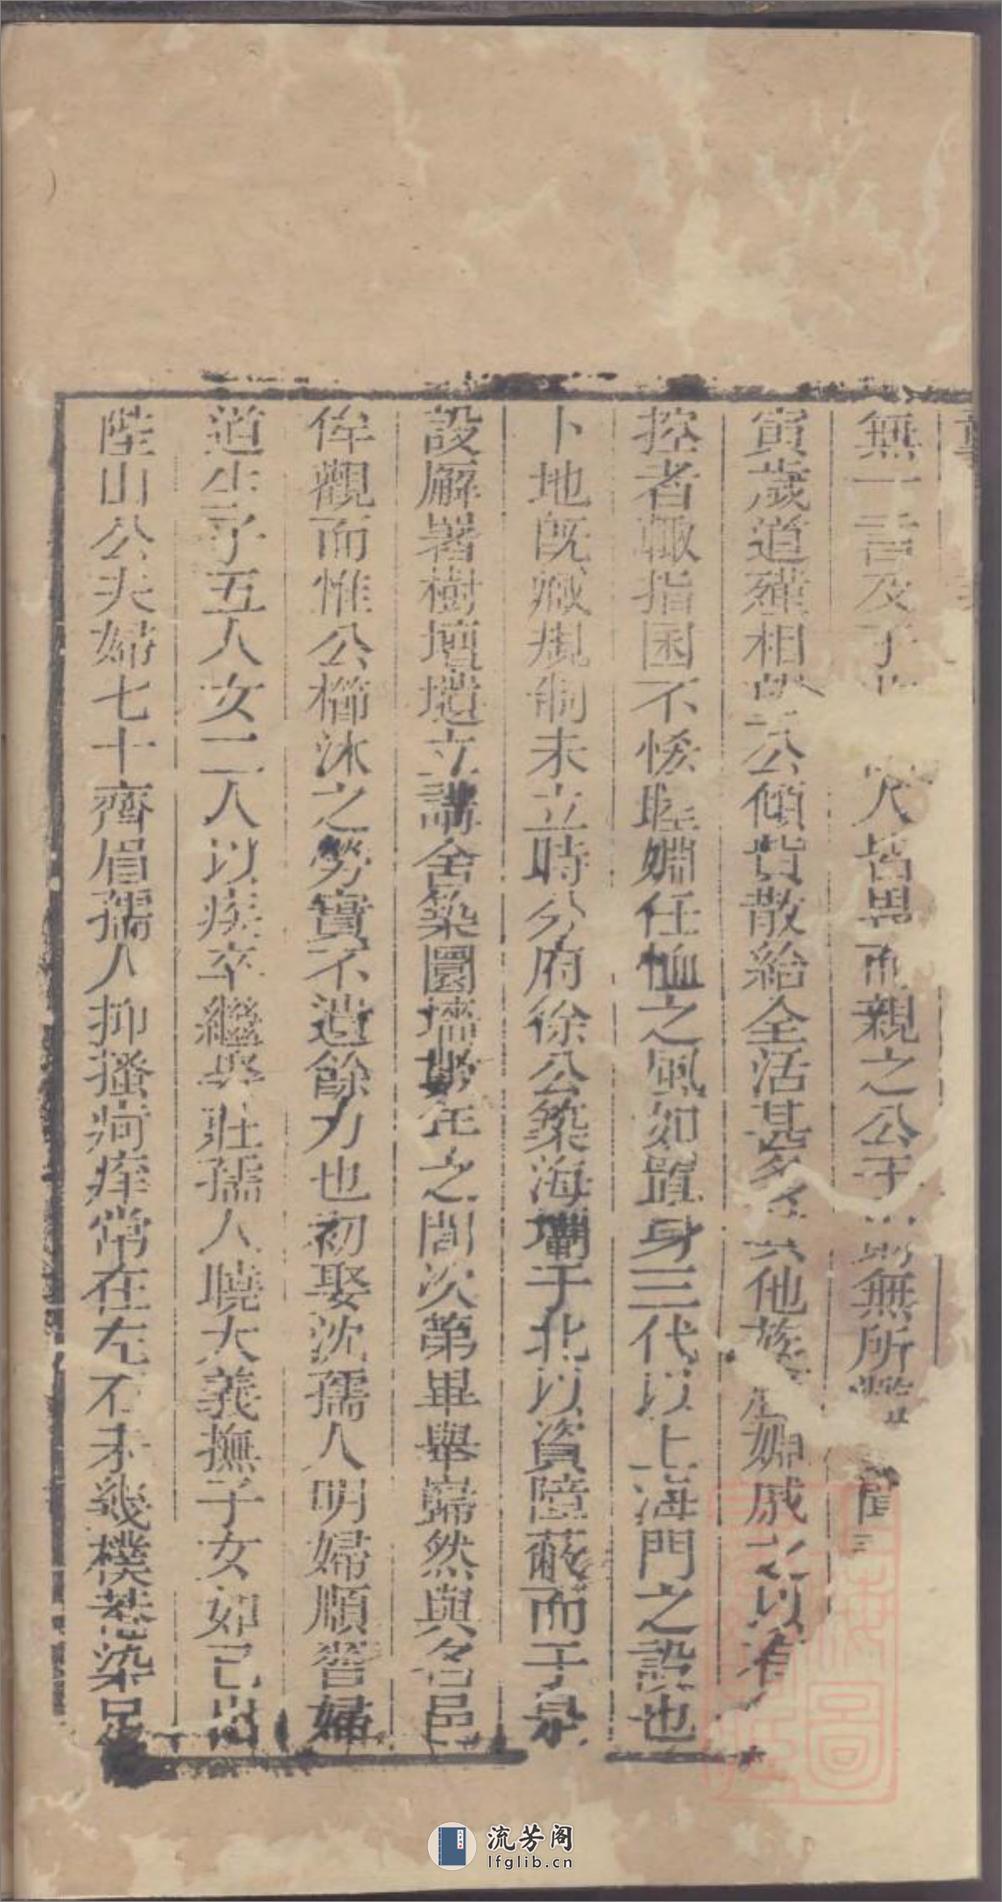 無一言及子 人皆畏而親之公于 無所
寅歲道殣相 公傾貲散給全活甚多 他族 姻戚之以有
控者輙指囷不恡睦婣任恤之風如置身三代以上海門之設也
卜地旣臧規制未立時分府徐公築海壩于北以資障蔽而于泉
設廨署樹壇壝立講舍築圜墻 年之間次第畢舉巋然與名邑
侔觀而惟公櫛沐之勞實不遺餘力也初娶沈孺人明婦順嗇婦
道生子五人女二人以疾卒繼娶莊孺人曉大義撫子女如己出
陸山公夫婦七十齊眉孺人抑搔疴痒常在左右未幾樸菴染足
流芳阁
lfglib.cn